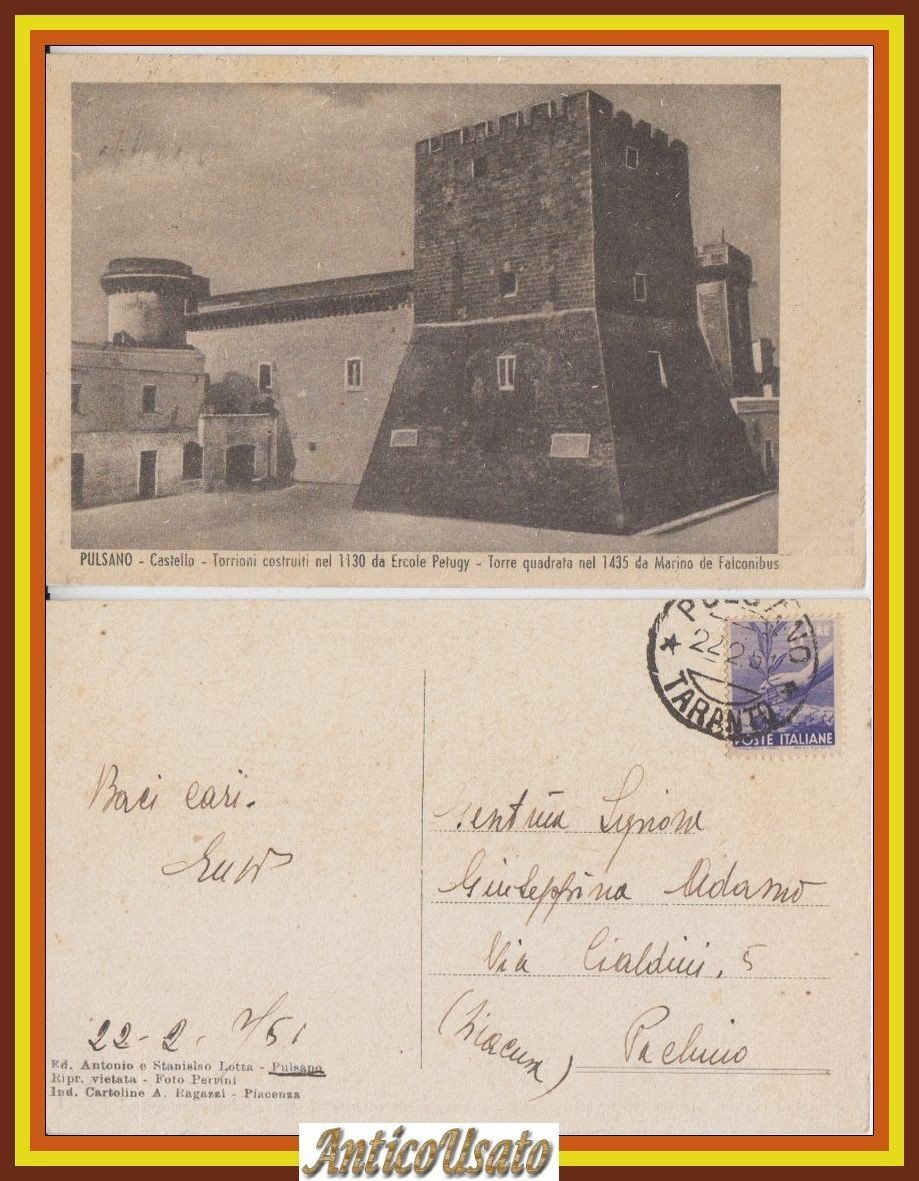 PULSANO - Castello - Torrioni costruiti nel 1130 da Ercole Petugy - Torre quadrata nel 1435 da Marino de Falconibus
PULSANO
22.2.51
TARANTO
POSTE ITALIANE
Baci cari.
Gent.ma Signora
Giuseppina Adamo
Via Cialdini, 5
(Siracusa) Pachino
22-2-
Ed. Antonio e Stanislao Lotta - Pulsano
Ripr. vietata - Foto Pervini
Ind. Cartoline A. Ragazzi - Piacenza
AnticoUsato